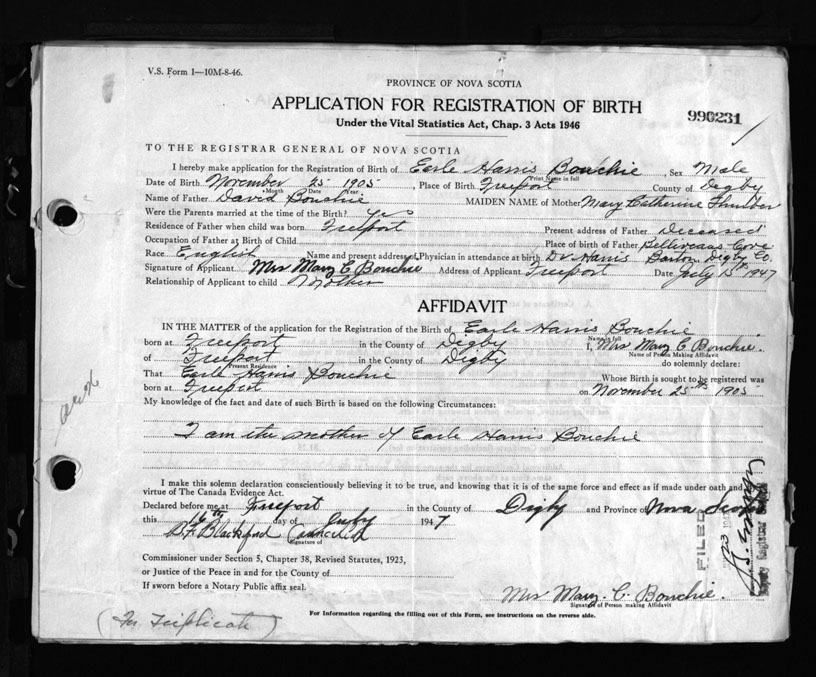 V.S. Form 1—10M-8-46.
PROVINCE OF NOVA SCOTIA
APPLICATION FOR REGISTRATION OF BIRTH
990231
Under the Vital Statistics Act, Chap. 3 Acts 1946
TO THE REGISTRAR GENERAL OF NOVA SCOTIA
I hereby make application for the Registration of Birth of Earle Harris Bouchie, Sex Male
Print Name in full
Date of Birth November 25 1905, Place of Birth Freeport County of Digby
Month Date Year
Name of Father David Bouchie MAIDEN NAME of Mother Mary Catherine Thurber
Were the Parents married at the time of the Birth? Yes
Residence of Father when child was born Freeport Present address of Father Deceased
Occupation of Father at Birth of Child Place of birth of Father Belliveaus Cove
Race English Name and present address of Physician in attendance at birth Dr Harris Barton Digby Co.
Signature of Applicant Mrs Mary C Bouchie Address of Applicant Freeport Date July 15th 1947
Relationship of Applicant to child Mother
AFFIDAVIT
IN THE MATTER of the application for the Registration of the Birth of Earle Harris Bouchie
Name in full
born at Freeport in the County of Digby I, Mrs Mary C Bouchie.
Name of Person Making Affidavit
of Freeport in the County of Digby do solemnly declare:
Present Residence
That Earle Harris Bouchie Whose Birth is sought to be registered was
born at Freeport on November 25th 1905
My knowledge of the fact and date of such Birth is based on the following Circumstances:
I am the mother of Earle Harris Bouchie
I make this solemn declaration conscientiously believing it to be true, and knowing that it is of the same force and effect as if made under oath and by
virtue of The Canada Evidence Act.
Declared before me at Freeport in the County of Digby and Province of Nova Scotia
this 16th day of July 1947
B. H. Blackford Councillor
Signature of
Commissioner under Section 5, Chapter 38, Revised Statutes, 1923,
or Justice of the Peace in and for the County of
If sworn before a Notary Public affix seal.
FILED
Deputy Registrar General
Mrs Mary. C. Bouchie.
Signature of Person making Affidavit
For Information regarding the filling out of this Form, see instructions on the reverse side.
(In Triplicate)